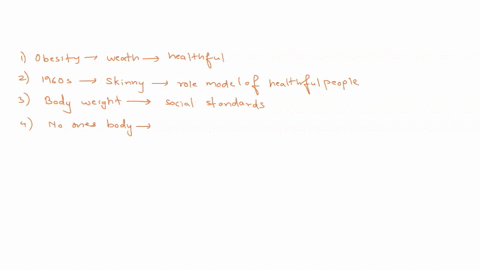 1) Obesity → weath → healthful
2) 1960s → Skinny → role model of healthful people
3) Body weight → social standards
4) No ones body →